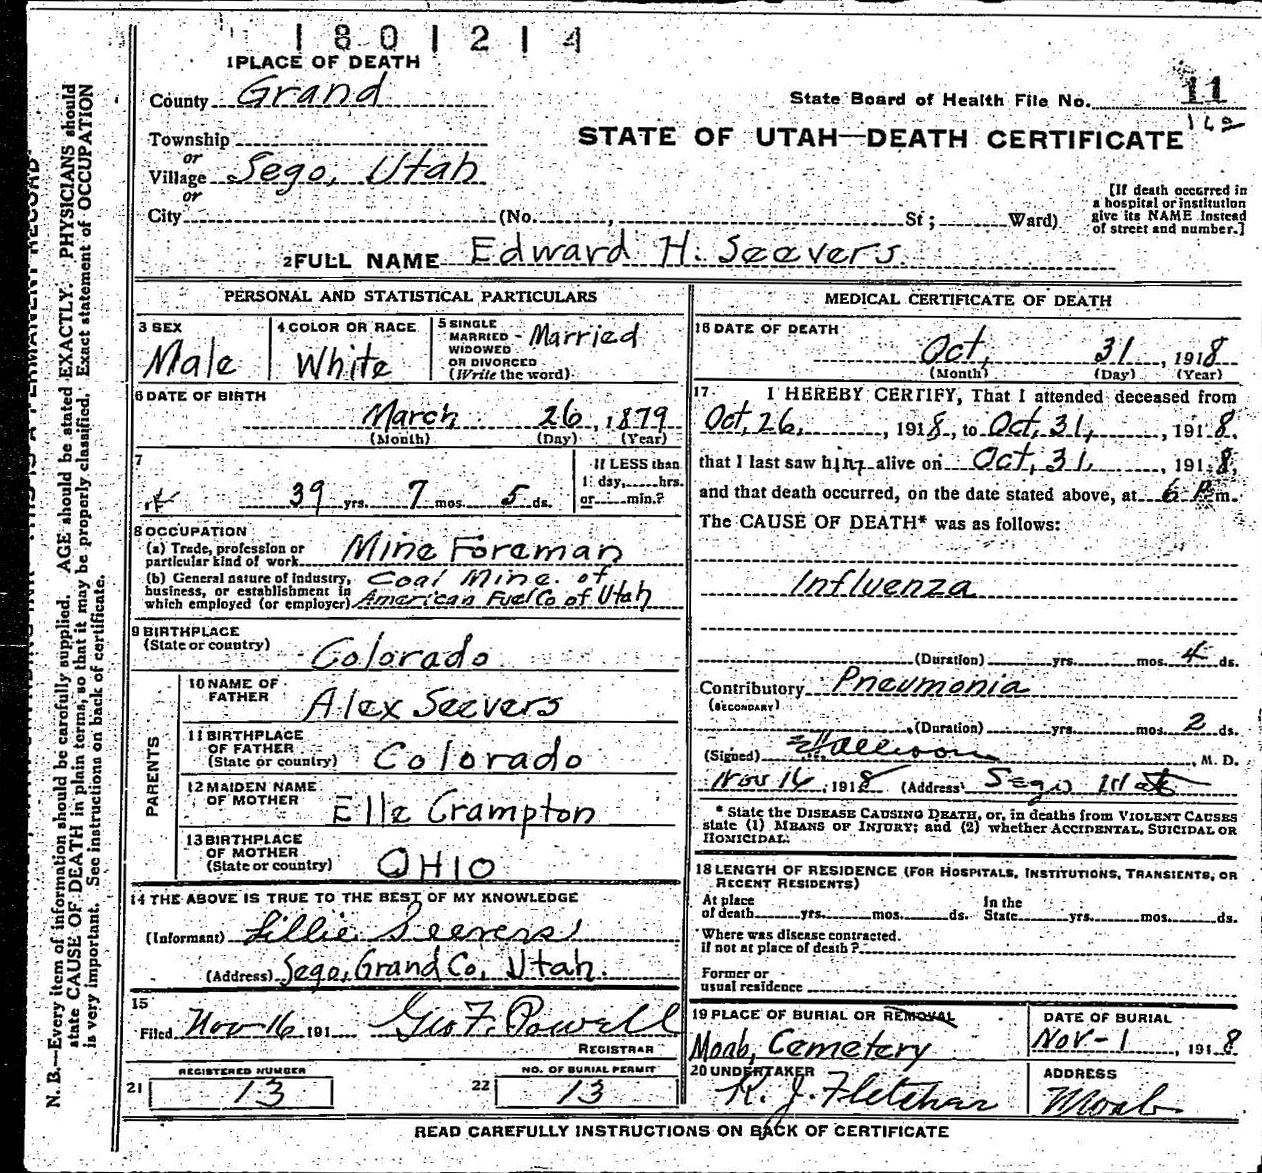 1801214
1 PLACE OF DEATH
County Grand
State Board of Health File No. 11
Township
or
STATE OF UTAH—DEATH CERTIFICATE
Village Sego, Utah
or
City (No. , St ; Ward)
[If death occurred in
a hospital or institution
give its NAME instead
of street and number.]
2 FULL NAME Edward H. Seevers.
PERSONAL AND STATISTICAL PARTICULARS
3 SEX
Male
4 COLOR OR RACE
White
5 SINGLE
MARRIED - Married
WIDOWED
OR DIVORCED
(Write the word)
6 DATE OF BIRTH
March 26, 1879
(Month) (Day) (Year)
7
39 yrs. 7 mos. 5 ds.
If LESS than
1 day, hrs.
or min.?
8 OCCUPATION
(a) Trade, profession or
particular kind of work Mine Foreman
(b) General nature of industry,
business, or establishment in
which employed (or employer)
Coal Mine. of
American Fuel Co of Utah
9 BIRTHPLACE
(State or country) Colorado
PARENTS
10 NAME OF
FATHER Alex Seevers
11 BIRTHPLACE
OF FATHER
(State or country) Colorado
12 MAIDEN NAME
OF MOTHER Elle Crampton
13 BIRTHPLACE
OF MOTHER
(State or country) OHIO
14 THE ABOVE IS TRUE TO THE BEST OF MY KNOWLEDGE
(Informant) Lillie Seevers
(Address) Sego, Grand Co, Utah.
15
Filed Nov 16 191 Geo F. Powell
REGISTRAR
21 REGISTERED NUMBER
13
22 NO. OF BURIAL PERMIT
13
MEDICAL CERTIFICATE OF DEATH
16 DATE OF DEATH
Oct, 31, 1918
(Month) (Day) (Year)
17 I HEREBY CERTIFY, That I attended deceased from
Oct, 26, , 1918, to Oct, 31, , 1918,
that I last saw him alive on Oct, 31, , 1918,
and that death occurred, on the date stated above, at 6 P.m.
The CAUSE OF DEATH* was as follows:
Influenza
(Duration) yrs. mos. 4 ds.
Contributory Pneumonia
(SECONDARY)
(Duration) yrs. mos. 2 ds.
(Signed) , M. D.
Nov 16, 1918 (Address) Sego Utah
* State the DISEASE CAUSING DEATH, or, in deaths from VIOLENT CAUSES
state (1) MEANS OF INJURY; and (2) whether ACCIDENTAL, SUICIDAL OR
HOMICIDAL.
18 LENGTH OF RESIDENCE (FOR HOSPITALS, INSTITUTIONS, TRANSIENTS, OR
RECENT RESIDENTS)
At place
of death yrs. mos. ds.
In the
State yrs. mos. ds.
Where was disease contracted.
if not at place of death ?
Former or
usual residence
19 PLACE OF BURIAL OR REMOVAL
Moab, Cemetery
DATE OF BURIAL
Nov - 1 1918
20 UNDERTAKER
R. J. Fletcher
ADDRESS
Moab
READ CAREFULLY INSTRUCTIONS ON BACK OF CERTIFICATE
N. B.—Every item of information should be carefully supplied. AGE should be stated EXACTLY. PHYSICIANS should
state CAUSE OF DEATH in plain terms, so that it may be properly classified. Exact statement of OCCUPATION
is very important. See instructions on back of certificate.